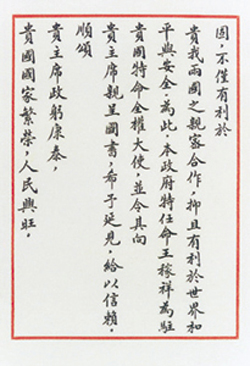 固,不僅有利於
貴我兩國之親密合作,抑且有利於世界和
平與安全。為此,本政府特任命王稼祥為駐
貴國特命全權大使,並令其向
貴主席親呈國書,希予延見,給以信賴。
順頌
貴主席政躬康泰,
貴國國家繁榮,人民興旺。